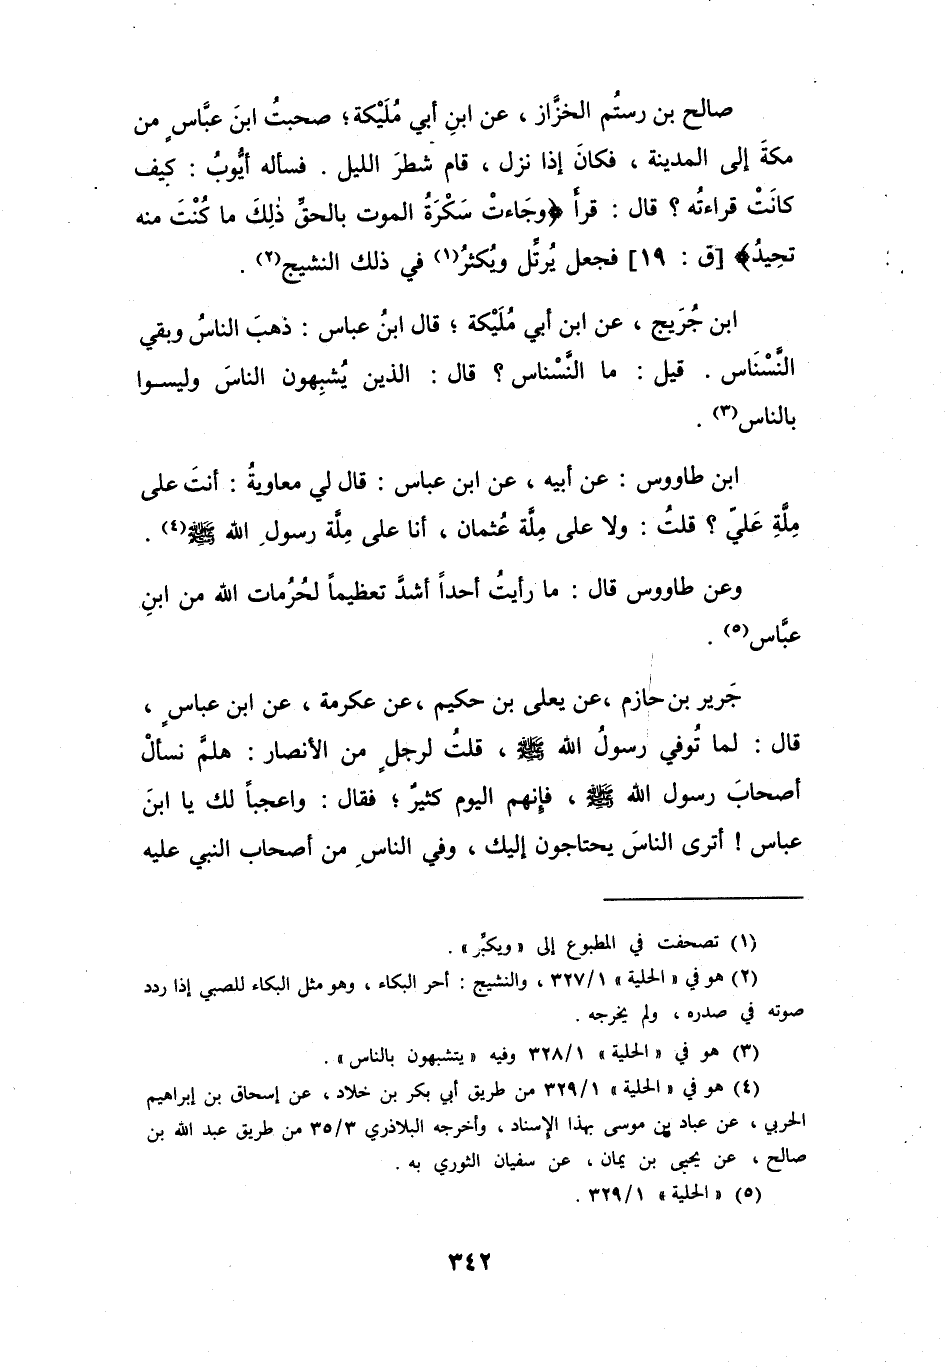 صالح بن رستُم الخزَّاز ، عن ابنِ أبي مُلَيْكة؛ صحبتُ ابنَ عبَّاسٍ من
مكةَ إلى المدينة ، فكانَ إذا نزل ، قام شطرَ الليل . فسأله أيُّوبُ : كيف
كانَتْ قراءتُه ؟ قال : قرأَ ﴿وجَاءتْ سَكْرَةُ الموت بالحقِّ ذٰلِكَ ما كُنْتَ منه
تحِيدُ﴾ [ق : ١٩] فجعل يُرتِّل ويُكثرُ(١) في ذلك النشيج(٢) .
ابن جُرَيج ، عن ابن أبي مُلَيْكة ؛ قال ابنُ عباس : ذهبَ الناسُ وبقي
النَّسْنَاس . قيل : ما النَّسْناس ؟ قال : الذين يُشبِهون الناسَ وليسوا
بالناس(٣) .
ابن طاووس : عن أبيه ، عن ابن عباس : قال لي معاويةُ : أنتَ على
مِلَّةِ عَليّ ؟ قلتُ : ولا على مِلَّة عُثمان ، أنا على مِلَّة رسولِ الله ﷺ(٤) .
وعن طاووس قال : ما رأيتُ أحداً أشدَّ تعظيماً لحُرُمات الله من ابنِ
عبَّاس(٥) .
جَرير بن حازم ،عن يعلى بن حكيم ،عن عكرمة ، عن ابن عباسٍ ،
قال : لما تُوفي رسولُ الله ﷺ ، قلتُ لرجلٍ من الأنصار : هلمَّ نسألْ
أصحابَ رسول الله ﷺ ، فإنهم اليوم كثيرٌ ؛ فقال : واعجباً لك يا ابنَ
عباس ! أترى الناسَ يحتاجون إليك ، وفي الناسِ من أصحاب النبي عليه
(١) تصحفت في المطبوع إلى « ويكبِّر» .
(٢) هو في « الحلية » ٣٢٧/١ ، والنشيج : أحر البكاء ، وهو مثل البكاء للصبي إذا ردد
صوته في صدره ، ولم يخرجه .
(٣) هو في « الحلية » ٣٢٨/١ وفيه « يتشبهون بالناس» .
(٤) هو في « الحلية » ٣٢٩/١ من طريق أبي بكر بن خلاد ، عن إسحاق بن إبراهيم
الحربي ، عن عباد بن موسى بهذا الإسناد ، وأخرجه البلاذري ٣٥/٣ من طريق عبد الله بن
صالح ، عن يحيى بن يمان ، عن سفيان الثوري به .
(٥) « الحلية » ٣٢٩/١ .
٣٤٢